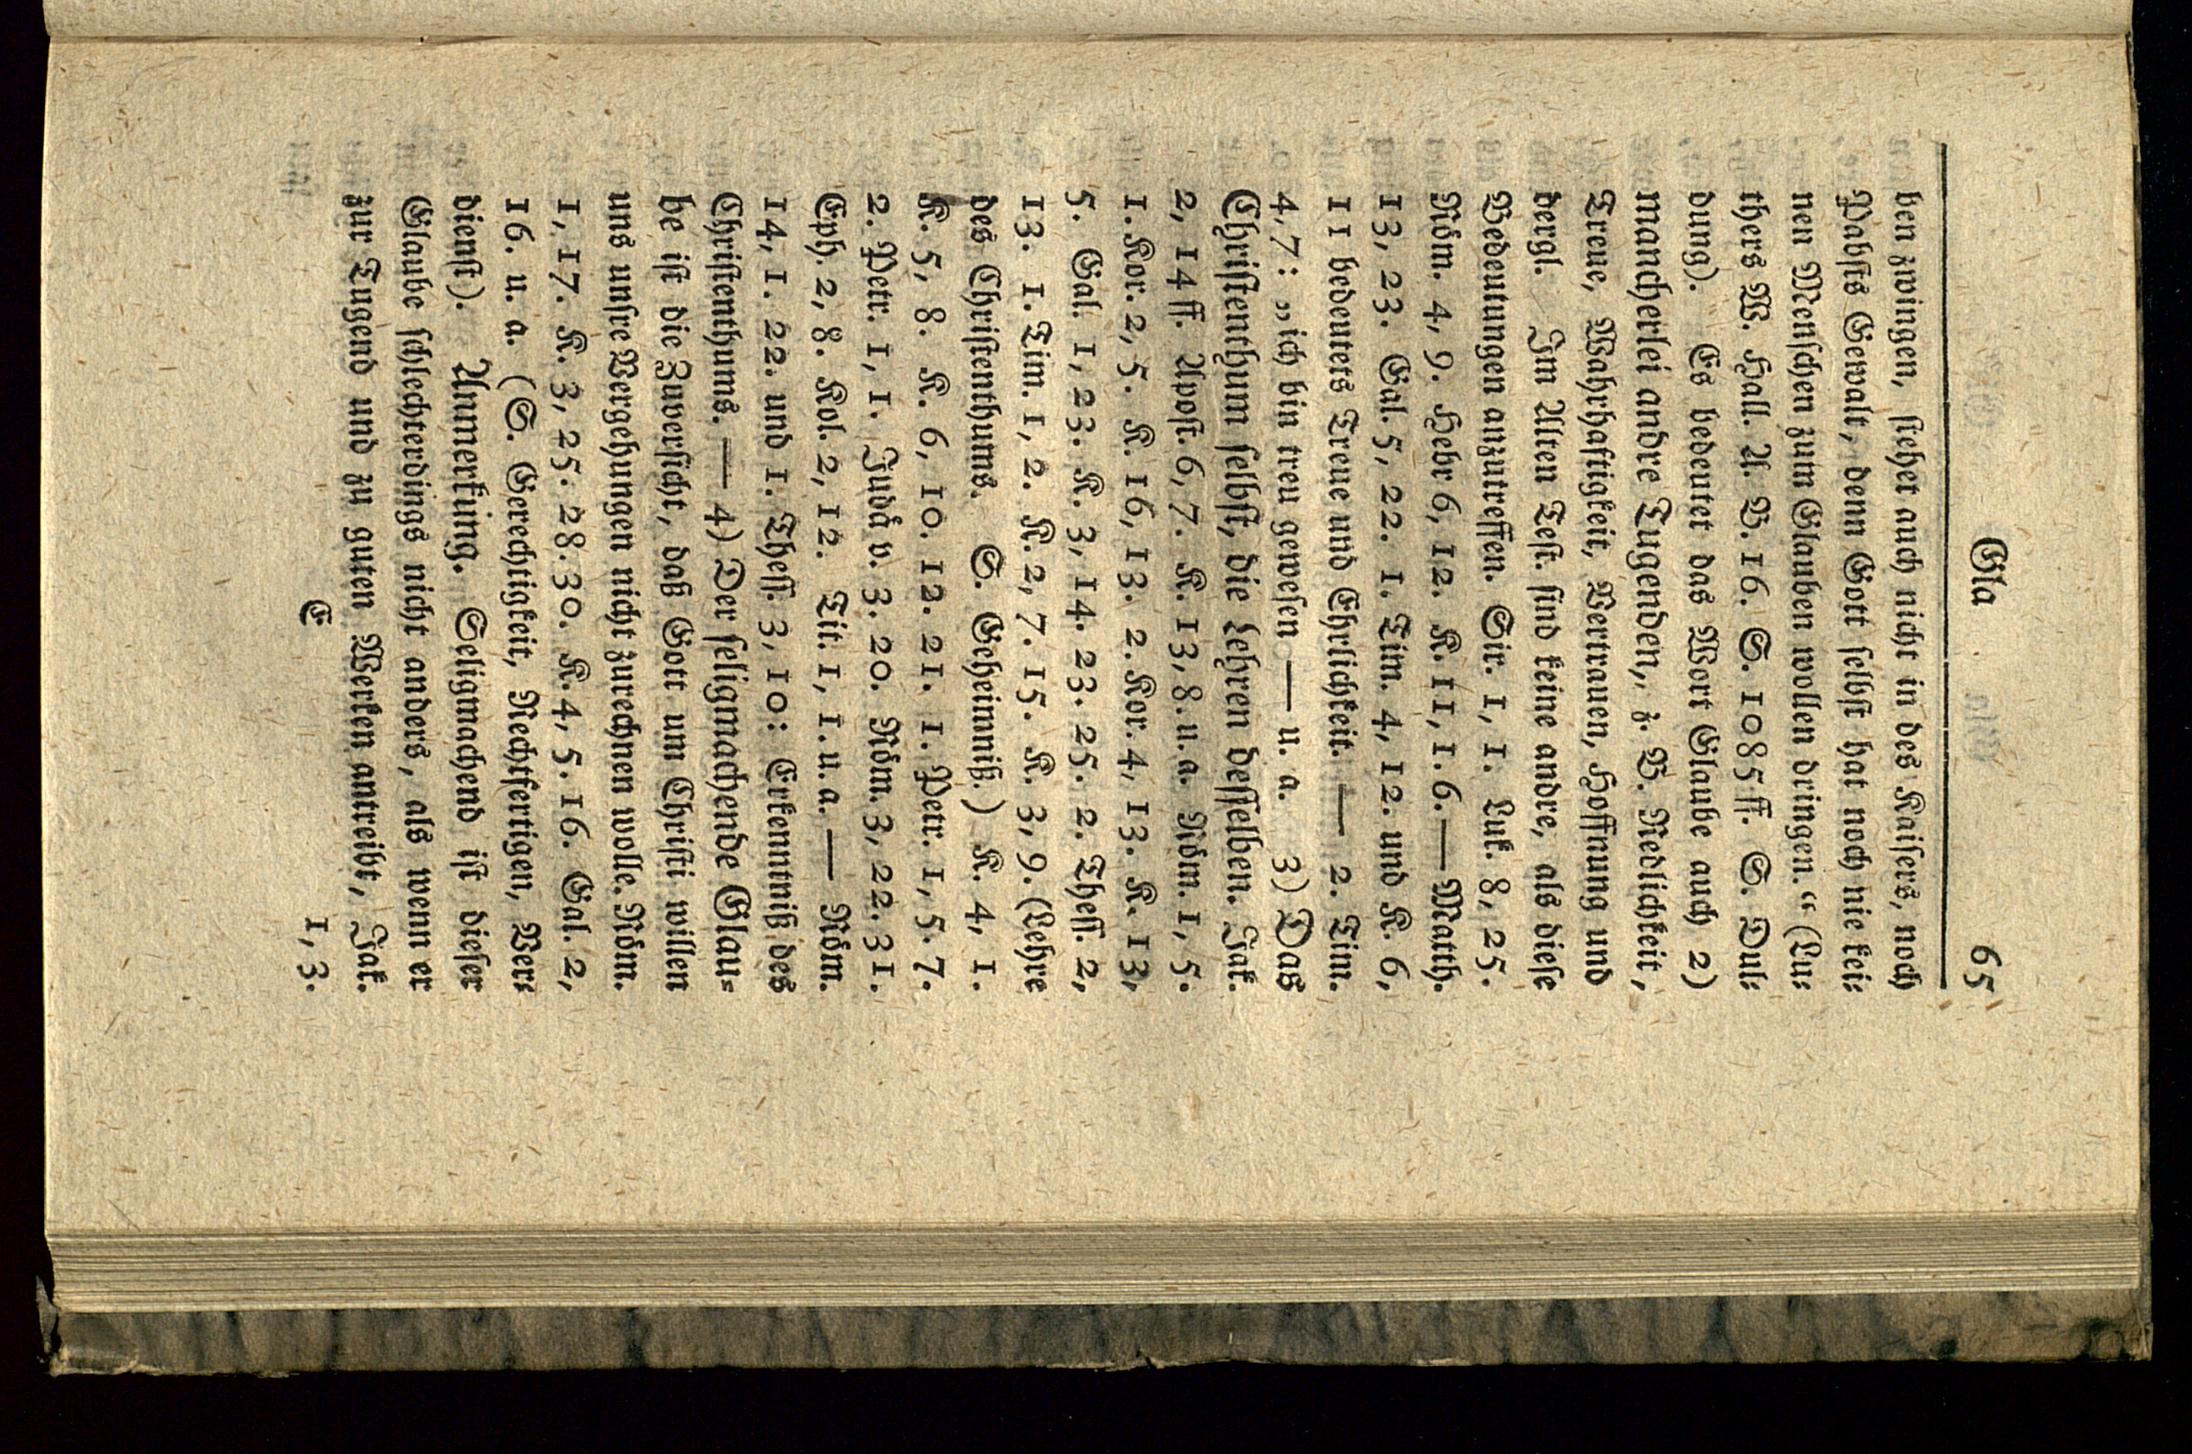 Gla 65
ben zwingen, stehet auch nicht in des Kaisers, noch
Pabsts Gewalt, denn Gott selbst hat noch nie kei:
nen Menschen zum Glauben wollen dringen.“ (Lu:
thers W. Hall. A. B. 16. S. 1085 ff. S. Dul:
dung). Es bedeutet das Wort Glaube auch 2)
mancherlei andre Tugenden,, z. B. Redlichkeit,
Treue, Wahrhaftigkeit, Vertrauen, Hoffnung und
dergl. Im Alten Test. sind keine andre, als diese
Bedeutungen anzutreffen. Sir. 1, 1. Luk. 8, 25.
Röm. 4, 9. Hebr 6, 12. K. 11, 1. 6. — Matth.
13, 23. Gal. 5, 22. 1. Tim. 4, 12. und K. 6,
11 bedeutets Treue und Ehrlichkeit. — 2. Tim.
4, 7: „ich bin treu gewesen — u. a. 3) Das
Christenthum selbst, die Lehren desselben. Jak.
2, 14 ff. Apost. 6, 7. K. 13, 8. u. a. Röm. 1, 5.
1. Kor. 2, 5. K. 16, 13. 2. Kor. 4, 13. K. 13,
5. Gal. 1, 23. K. 3, 14. 23. 25. 2. Thess. 2,
13. 1. Tim. 1, 2. K. 2, 7. 15. K. 3, 9. (Lehre
des Christenthums. S. Geheimniß.) K. 4, 1.
K. 5, 8. K. 6, 10. 12. 21. 1. Petr. 1, 5. 7.
2. Petr. 1, 1. Judä v. 3. 20. Röm. 3, 22. 31.
Eph. 2, 8. Kol. 2, 12. Tit. 1, 1. u. a. — Röm.
14, 1. 22. und 1. Thess. 3, 10: Erkenntniß des
Christenthums. — 4) Der seligmachende Glau-
be ist die Zuversicht, daß Gott um Christi willen
uns unsre Vergehungen nicht zurechnen wolle. Röm.
1, 17. K. 3, 25. 28. 30. K. 4, 5. 16. Gal. 2,
16. u. a. (S. Gerechtigkeit, Rechtfertigen, Ver:
dienst). Anmerkung. Seligmachend ist dieser
Glaube schlechterdings nicht anders, als wenn er
zur Tugend und zu guten Werken antreibt, Jak.
E 1, 3.